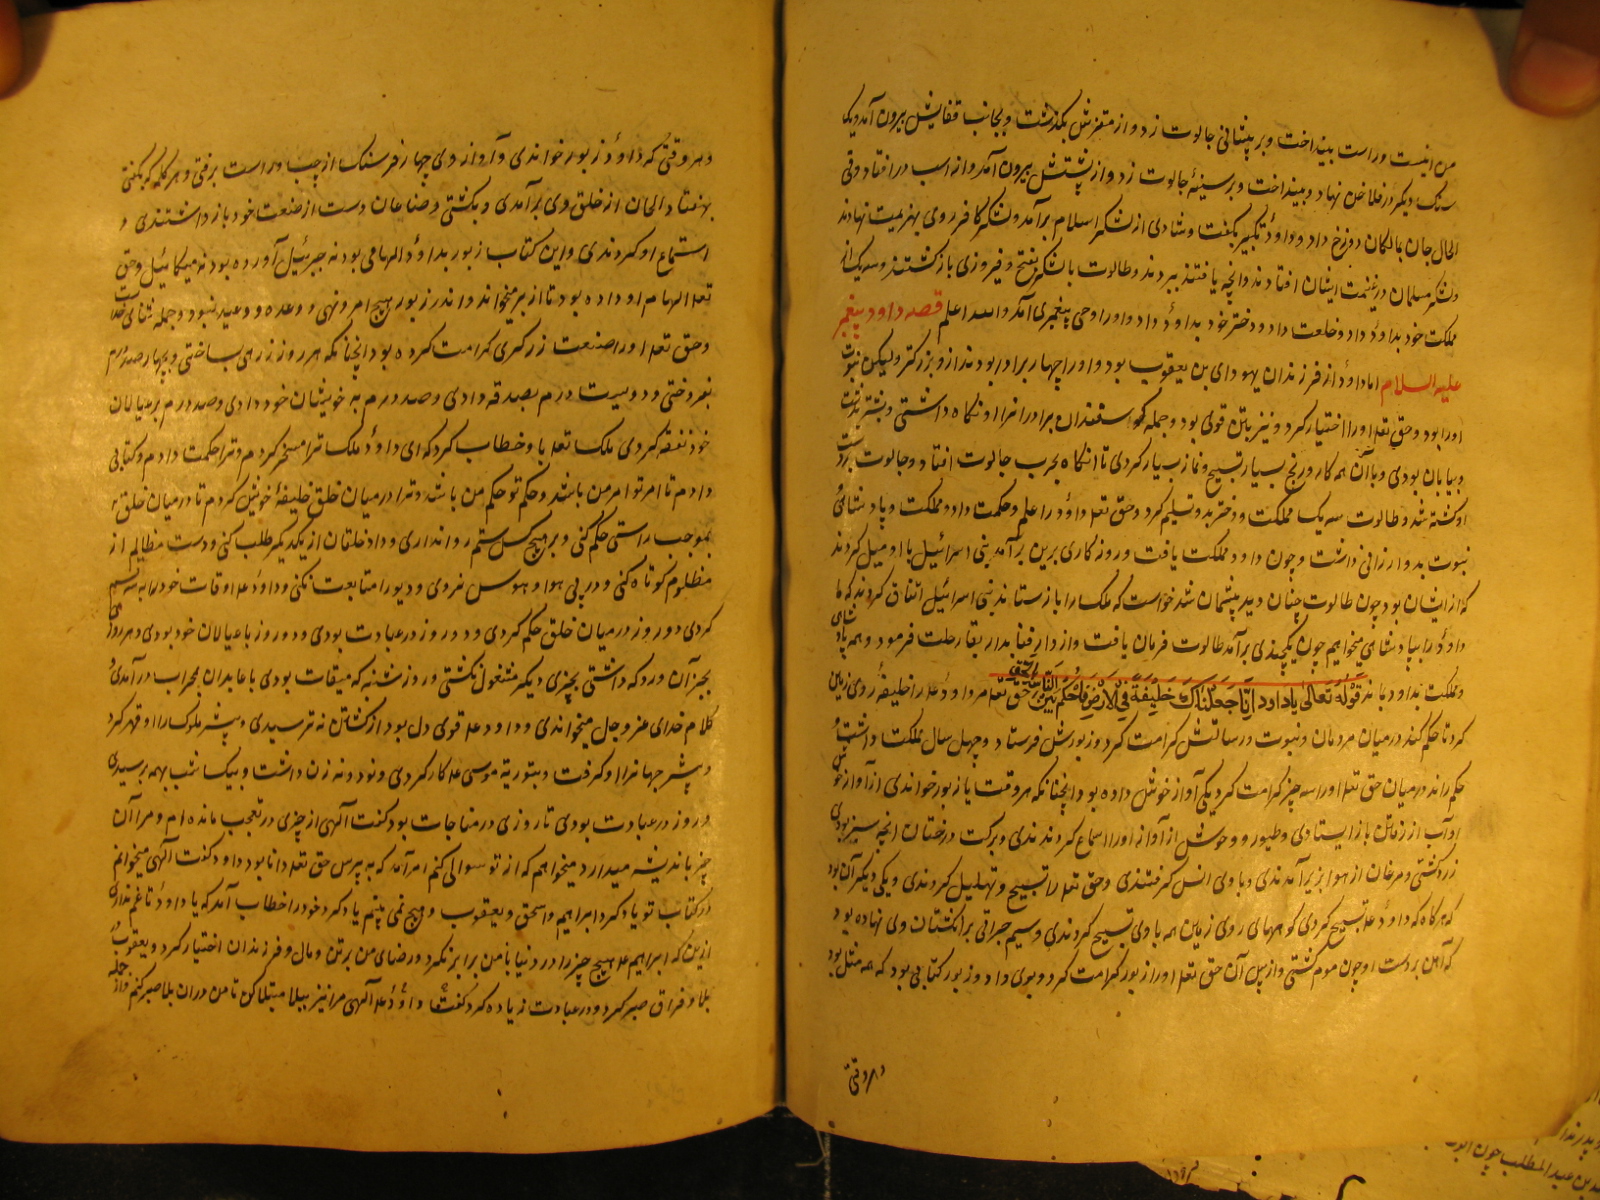 من اینست و راست بینداخت و بر پیشانی جالوت زد و از مغزش بگذشت و بجانب قفایش بیرون آمد و یک
سنک دیکر در فلاخن نهاد و بینداخت و بر سینهٔ جالوت زد و از پشتش بیرون آمد و از اسب در افتاد و فی
الحال جان بمالکان دوزخ داد و داود تکبیر بکفت و شادی از لشکر اسلام برآمد و لشکر کافر روی بهزیمت نهادند
و لشکر مسلمان در غنیمت ایشان افتادند و آنچه یافتند ببردند و طالوت با لشکر بفتح و فیروزی باز کشتند و سه یک از
مملکت خود بداود داد و خلعت داد و دختر خود بداود داد و او را وحی پیغمبری آمد والله اعلم قصه داود پیغمبر
علیه السلام اما داود از فرزندان یهودای بن یعقوب بود و او را چهار برادر بودند از و بزرکتر ولیکن نبوت
او را بود و حق تعه او را اختیار کرد و نیز بتن قوی بود و جمله کوسفندان برادران را او نکاه داشتی و بیشتر بدشت
و بیابان بودی و با آن همه کار و رنج بسیار تسبیح و نماز بسیار کردی تا آنکاه بحرب جالوت افتاد و جالوت بر دست
او کشته شد و طالوت سه یک مملکت و دختر بدو تسلیم کرد و حق تعه داود را علم و حکمت داد و مملکت و پادشاهی
نبوت بدو ارزانی داشت و چون داود مملکت یافت و روزکاری برین برآمد بنی اسرائیل با او میل کردند
که از ایشان بود چون طالوت چنان دید پشیمان شد خواست که ملک را باز ستاند بنی اسرائیل اتفاق کردند که ما
داود را بپادشاهی میخواهیم چون یکچندی برآمد طالوت فرمان یافت و از دار فنا بدار بقا رحلت فرمود و همه پادشاهی
و مملکت بداود بماند قوله تعالی یا داود انا جعلناک خلیفة فی الارض فاحکم بین الناس بالحق حق تعه مر داود ع را خلیفهٔ روی زمین
کرد تا حکم کند درمیان مردمان و نبوت و رسالتش کرامت کرد و زبورش فرستاد و چهل سال مملکت داشت
حکم راند درمیان حق تعه او را سه چیز کرامت کرد یکی آواز خوش داده بود آنچنانکه هر وقت یا زبور خواندی از آواز خوش
او آب از رفتن باز ایستادی و طیور و وحوش از آواز او را استماع کردندی و برکت درختان آنچه سبز بودی
زرد کشتی و مرغان از هوا بزیر آمدندی و با وی انس کرفتندی و حق تعه را تسبیح و تهلیل کردندی و یکی دیکر آن بود
که هرکاه که داود ع تسبیح کردی کوههای روی زمین همه با وی تسبیح کردندی و سیم جراتی بر انکشتان وی نهاده بود
که آهن بر دست او چون موم کشتی و از پس آن حق تعه او را زبور کرامت کرد و بوی داد و زبور کتابی بود که همه مثل بود
و هر وقتی
و هر وقتی که داود زبور خواندی و آواز وی چهار فرسنک از چپ و راست برفتی و هر کلمه که بکفتی
بهفتاد الحان از خلق وی برآمدی و بکشتی و صناعان دست از صنعت خود باز داشتندی و
استماع او کردندی و این کتاب زبور بداود الهامی بود نه جبرئیل آورده بود نه میکائیل و حق
تعه الهام او داده بود تا از بر میخواند و اندر زبور هیچ امر و نهی و وعده و وعید نبود و جمله ثنای حق است
و حق تعه او را صنعت زرکری کرامت کرده بود آنچنانکه هر روز زرهی ساختی و بچهار صد درم
بفروختی و دویست درم بصدقه دادی و صد درم به خویشان خود دادی و صد درم بر عیالان
خود نفقه کردی ملک تعه با و خطاب کرد که ای داود ملک ترا مسخر کردم و ترا حکمت دادم و کتابی
دادم تا امر تو امر من باشد و حکم تو حکم من باشد و ترا درمیان خلق خلیفهٔ خویش کردم تا درمیان خلق
بموجب راستی حکم کنی و بر هیچ کس ستم روا نداری و داد خلقان از یکدیکر طلب کنی و دست مظالم از
مظلوم کوتاه کنی و در پی هوا و هوس نروی و دیو را متابعت نکنی و داود ع اوقات خود را به سه قسم
کردی دو روز درمیان خلق حکم کردی و دو روز در عبادت بودی و دو روز با عیالان خود بودی و هر روزی
بجز آن ورد که داشتی بچیزی دیکر مشغول نکشتی و روز شنبه که میقات بودی با عابدان بمحراب درآمدی و
کلام خدای عز و جل میخواندی و داود ع قوی دل بود از کشتن نه ترسیدی و بیشتر ملوک را او قهر کرد
و بیشتر جهان را او کرفت و بتوریة موسی ع کار کردی و نود و نه زن داشت و بیک شب بهمه برسیدی
و روز در عبادت بودی تا روزی در مناجات بود کفت آلهی از چیزی در تعجب مانده ام و مرا آن
چیز باندیشه میدارد میخواهم که از تو سوالی کنم امر آمد که بپرس حق تعه دانا بود داود کفت آلهی میخوانم
در کتاب تو یاد کرد ابراهیم و اسحق و یعقوب و هیچ نمی بینم یاد کرد خود را خطاب آمد که یا داود تا غم نداری
از این که ابراهیم ع هیچ چیز را در دنیا با من برابر نکرد و رضای من بر تن و مال و فرزندان اختیار کرد و یعقوب
بلا و فراق صبر کرد و در عبادت زیاده کرد کفت داود ع آلهی مرا نیز ببلا مبتلا کن تا من در آن بلا صبر کنم و از جمله